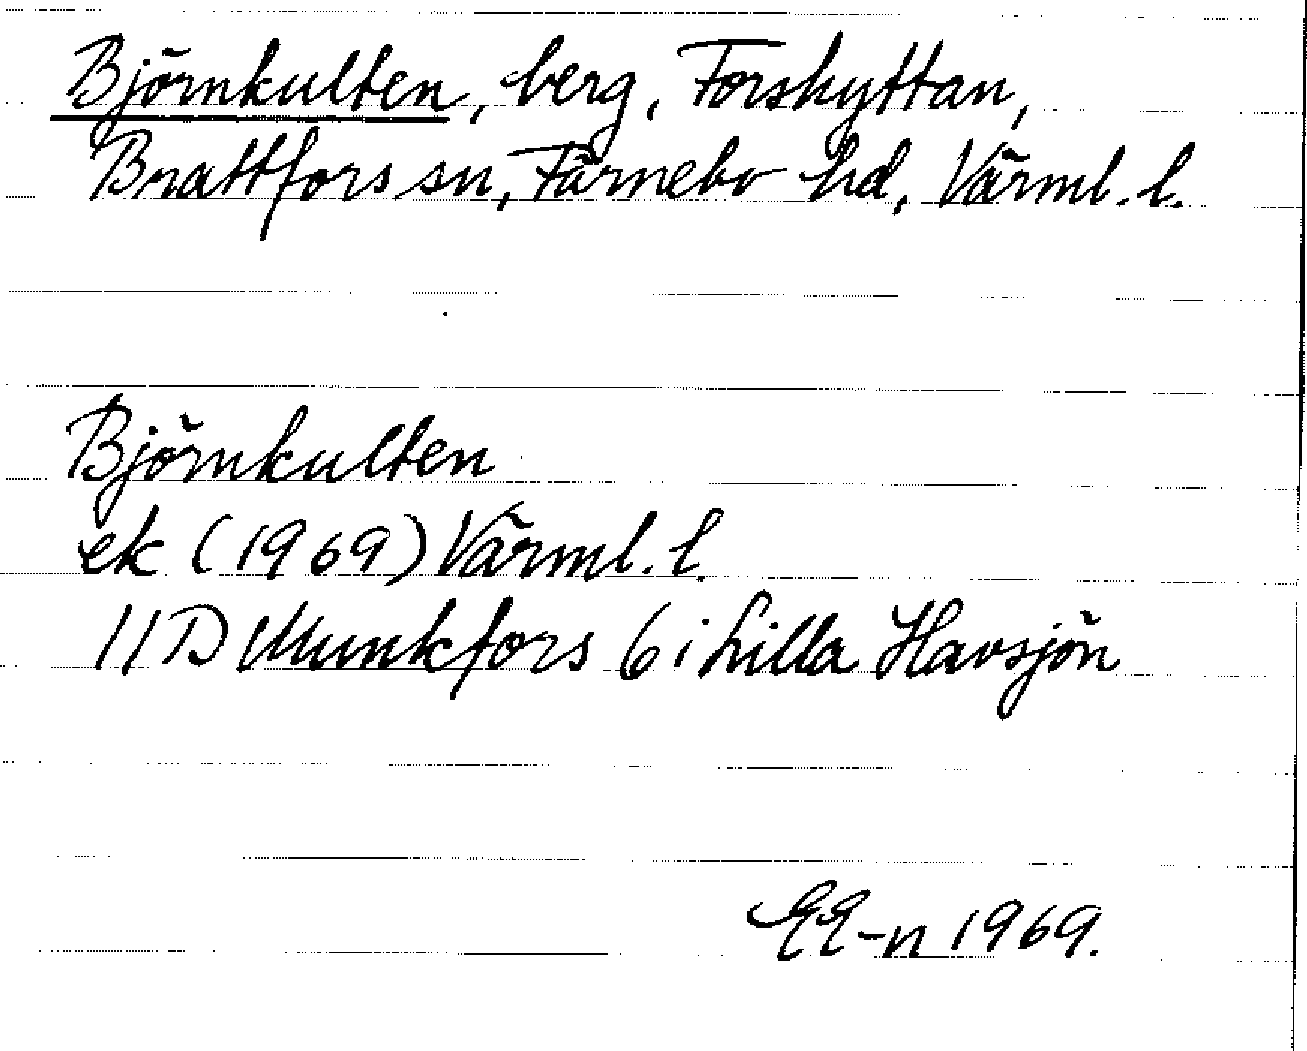 Björnkulten, berg, Forshyttan,
Brattfors sn, Färnebo hd, Värml. l.
Björnkulten
ek (1969) Värml. l.
11D Munkfors 6 i Lilla Havsjön
EE-n 1969.